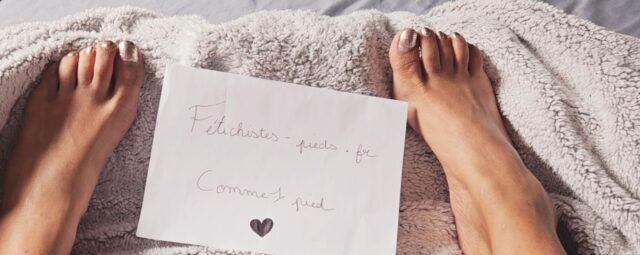 Fétichistes-pieds.fr
Comme1pied